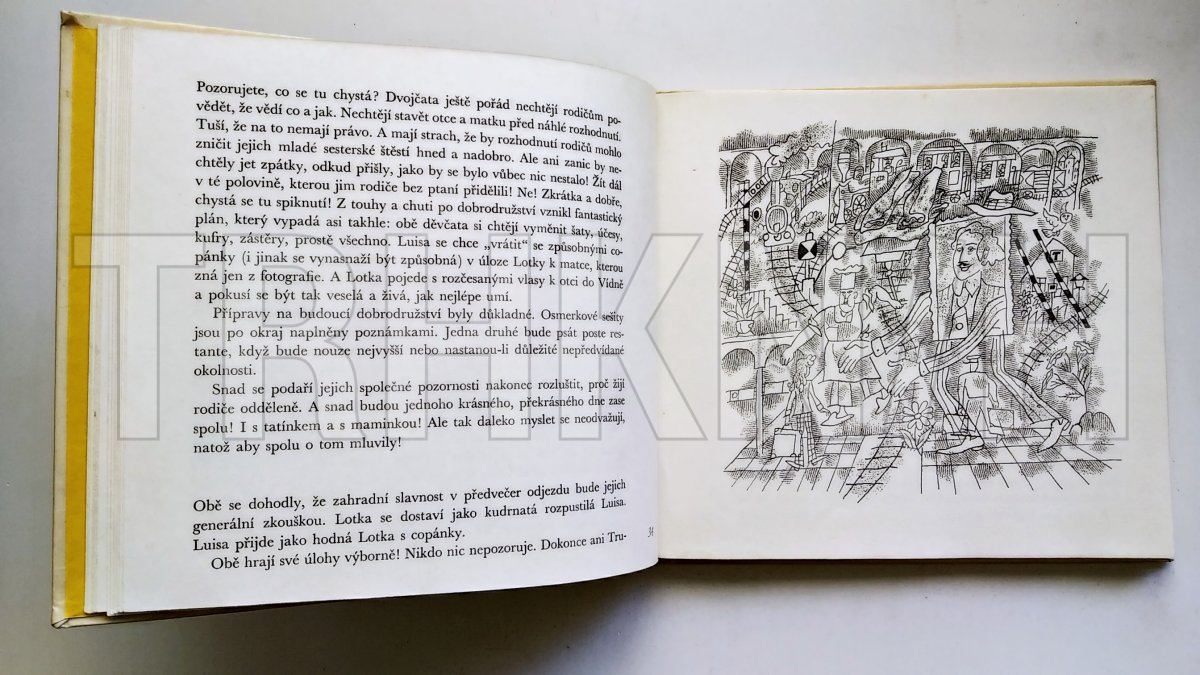 Pozorujete, co se tu chystá? Dvojčata ještě pořád nechtějí rodičům po-
vědět, že vědí co a jak. Nechtějí stavět otce a matku před náhlé rozhodnutí.
Tuší, že na to nemají právo. A mají strach, že by rozhodnutí rodičů mohlo
zničit jejich mladé sesterské štěstí hned a nadobro. Ale ani zanic by ne-
chtěly jet zpátky, odkud přišly, jako by se bylo vůbec nic nestalo! Žít dál
v té polovině, kterou jim rodiče bez ptaní přidělili! Ne! Zkrátka a dobře,
chystá se tu spiknutí! Z touhy a chuti po dobrodružství vznikl fantastický
plán, který vypadá asi takhle: obě děvčata si chtějí vyměnit šaty, účesy,
kufry, zástěry, prostě všechno. Luisa se chce „vrátit“ se způsobnými co-
pánky (i jinak se vynasnaží být způsobná) v úloze Lotky k matce, kterou
zná jen z fotografie. A Lotka pojede s rozčesanými vlasy k otci do Vídně
a pokusí se být tak veselá a živá, jak nejlépe umí.
Přípravy na budoucí dobrodružství byly důkladné. Osmerkové sešity
jsou po okraj naplněny poznámkami. Jedna druhé bude psát poste res-
tante, když bude nouze nejvyšší nebo nastanou-li důležité nepředvídané
okolnosti.
Snad se podaří jejich společné pozornosti nakonec rozluštit, proč žijí
rodiče odděleně. A snad budou jednoho krásného, překrásného dne zase
spolu! I s tatínkem a s mamínkou! Ale tak daleko myslet se neodvažují,
natož aby spolu o tom mluvily!
Obě se dohodly, že zahradní slavnost v předvečer odjezdu bude jejich
generální zkouškou. Lotka se dostaví jako kudrnatá rozpustilá Luisa.
Luisa přijde jako hodná Lotka s copánky.
Obě hrají své úlohy výborně! Nikdo nic nepozoruje. Dokonce ani Tru-
T